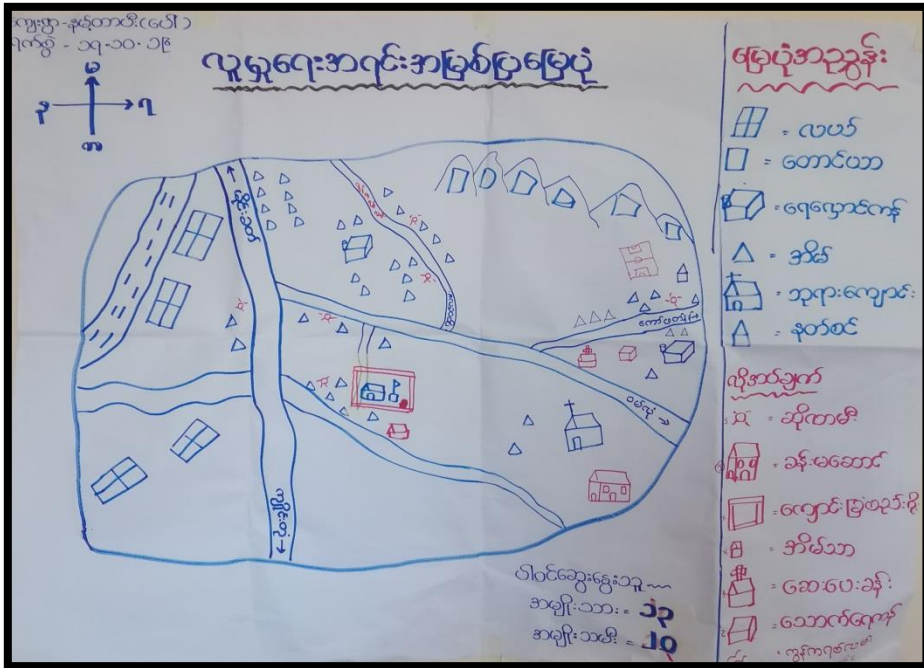 ရက်စွဲ - ၁၅-၁၀-၁၆
လူမှုရေးအရင်းအမြစ်ပြမြေပုံ
မ
န
ရ
တ
မိုင်းခတ်
ကျိုင်းတုံ
ဝမ်လုံ
မြေပုံအညွှန်း
= လယ်
= တောင်ယာ
= ရေလှောင်ကန်
= အိမ်
= ဘုရားကျောင်း
= နတ်စင်
လိုအပ်ချက်
= ဆိုလာမီး
= ခန်းမဆောင်
= ကျောင်းခြံစည်းရိုး
= အိမ်သာ
= ဆေးပေးခန်း
= သောက်ရေကန်
ပါဝင်ဆွေးနွေးသူ
အမျိုးသား = ၁၃
အမျိုးသမီး = ၂၀